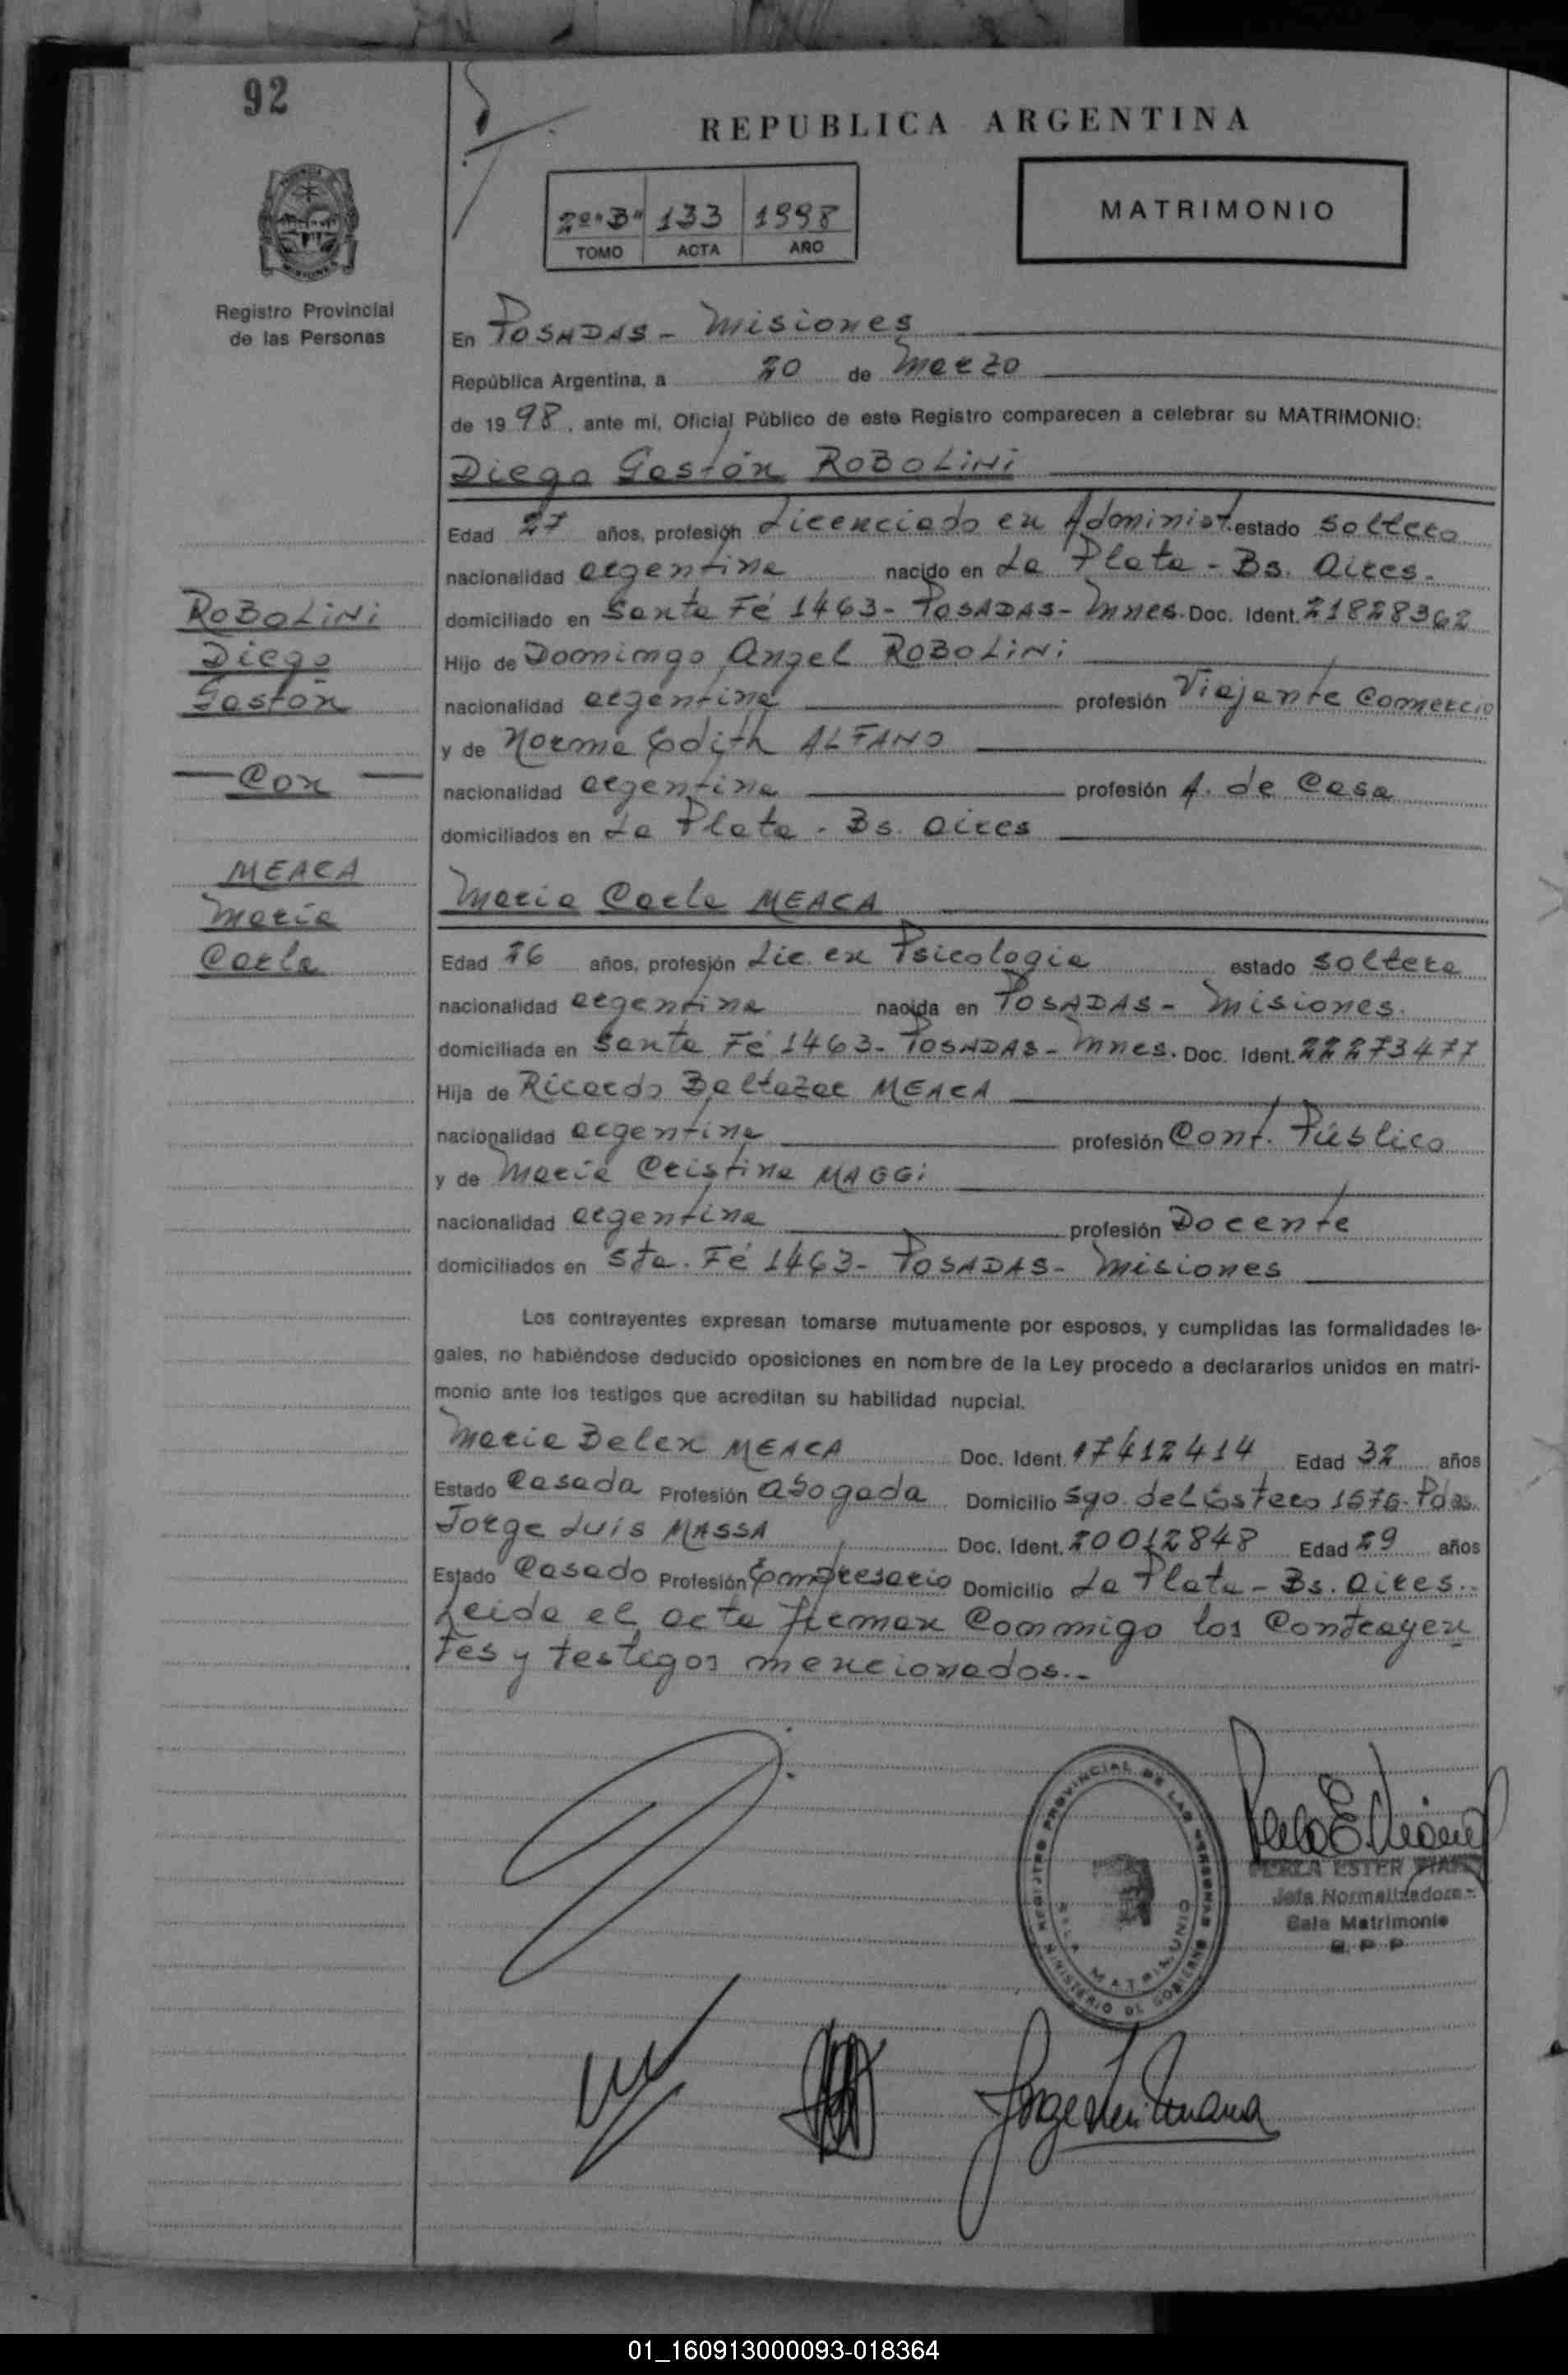 92
REPUBLICA ARGENTINA
2º "B" 133 1998
TOMO ACTA AÑO
MATRIMONIO
Registro Provincial
de las Personas
En POSADAS - Misiones
República Argentina, a 20 de Marzo
de 1998, ante mí, Oficial Público de este Registro comparecen a celebrar su MATRIMONIO:
Diego Gastón ROBOLINI
Edad 27 años, profesión Licenciado en Administ. estado soltero
nacionalidad argentina nacido en La Plata - Bs. Aires.
domiciliado en Santa Fé 1463 - POSADAS - Mnes. Doc. Ident. 21828362
Hijo de Domingo Angel ROBOLINI
nacionalidad argentina profesión Viajante Comercio
y de Norma Edith ALFANO
nacionalidad argentina profesión A. de Casa
domiciliados en La Plata - Bs. Aires
ROBOLINI
Diego
Gastón
Con
MEACA
María
Carla
María Carla MEACA
Edad 26 años, profesión Lic. en Psicologia estado soltera
nacionalidad argentina nacida en POSADAS - Misiones.
domiciliada en Santa Fé 1463 - POSADAS - Mnes. Doc. Ident. 22273477
Hija de Ricardo Baltazar MEACA
nacionalidad argentina profesión Cont. Público
y de María Cristina MAGGI
nacionalidad argentina profesión Docente
domiciliados en Sta. Fé 1463 - POSADAS - Misiones
Los contrayentes expresan tomarse mutuamente por esposos, y cumplidas las formalidades le-
gales, no habiéndose deducido oposiciones en nombre de la Ley procedo a declararlos unidos en matri-
monio ante los testigos que acreditan su habilidad nupcial.
Maria Belen MEACA Doc. Ident. 17412414 Edad 32 años
Estado Casada Profesión Abogada Domicilio Sgo. del Estero 1575 - Pdas.
Jorge Luis MASSA Doc. Ident. 20012848 Edad 29 años
Estado Casado Profesión Empresario Domicilio La Plata - Bs. Aires.
Leida el acta firman Conmigo los Contrayen
tes y testigos mencionados.-
REGISTRO PROVINCIAL DE LAS PERSONAS
MINISTERIO DE GOBIERNO
SALA MATRIMONIO
PERLA ESTER
Jefa Normalizadora
Sala Matrimonio
R. P. P.
01_160913000093-018364